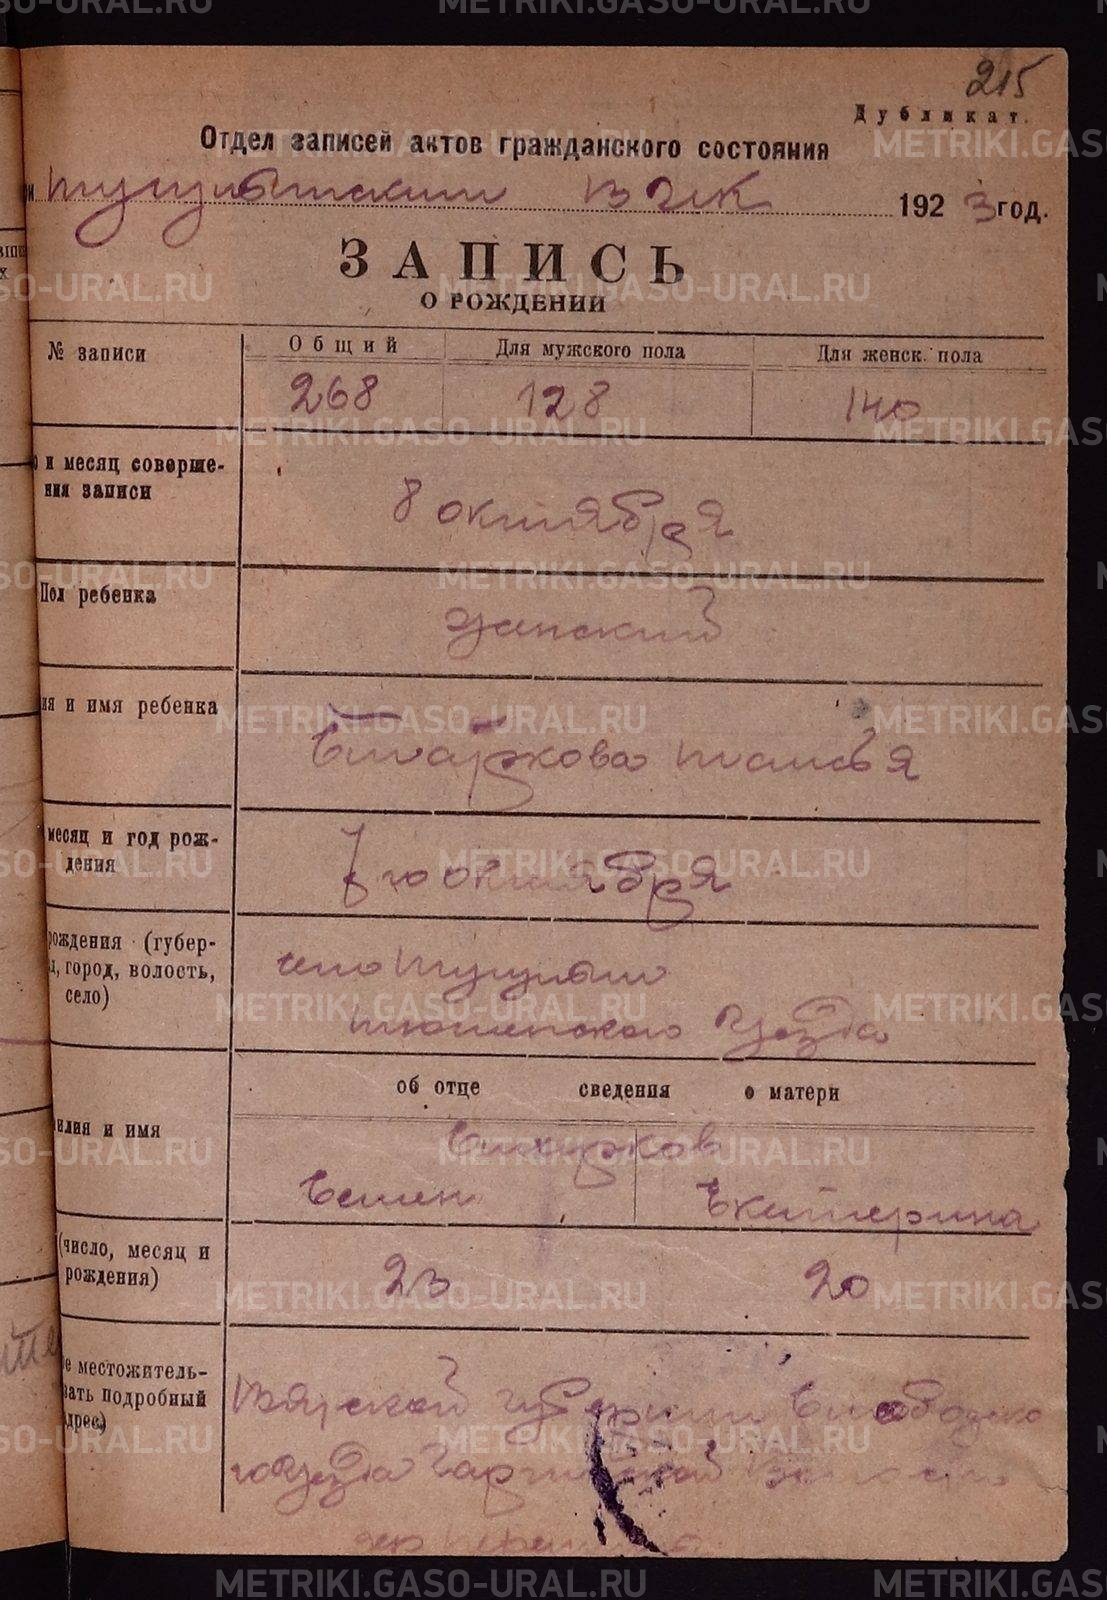 215
Дубликат.
Отдел записей актов гражданского состояния
при Тугулымском ВИК 1923 год.
ЗАПИСЬ
О РОЖДЕНИИ
№ записи
Общий
Для мужского пола
Для женск. пола
268
128
140
о и месяц соверше-
ния записи
8 октября
Пол ребенка
женский
ия и имя ребенка
месяц и год рож-
дения
7го октября
рождения (губер-
, город, волость,
село)
село Тугулым
Тюменского уезда
об отце сведения о матери
илия и имя
Семен
Екатерина
(число, месяц и
рождения)
23
20
е местожитель-
зать подробный
дрес)
Вятской губернии Слободско
го уезда волости
дер
METRIKI.GASO-URAL.RU